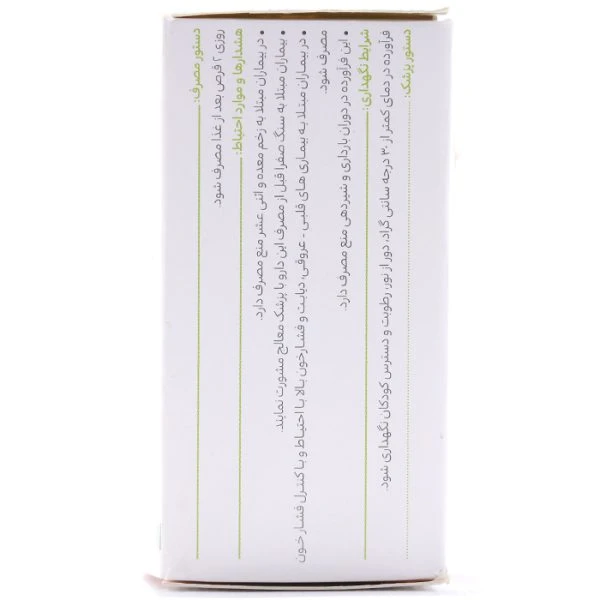 دستور مصرف:
روزی ۲ قرص بعد از غذا مصرف شود.
هشدارها و موارد احتیاط:
• در بیماران مبتلا به زخم معده و اثنی عشر منع مصرف دارد.
• بیماران مبتلا به سنگ صفرا قبل از مصرف این دارو با پزشک معالج مشورت نمایند.
• در بیماران مبتلا به بیماری های قلبی - عروقی، دیابت و فشارخون بالا با احتیاط و با کنترل فشار خون
مصرف شود.
• این فرآورده در دوران بارداری و شیردهی منع مصرف دارد.
شرایط نگهداری:
فرآورده در دمای کمتر از ۳۰ درجه سانتی گراد، دور از نور، رطوبت و دسترس کودکان نگهداری شود.
دستور پزشک: